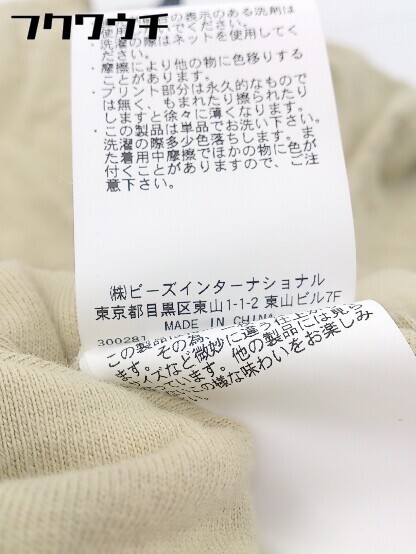 フクワウチ
の表示のある洗剤は
でください。
・洗濯の際はネットを使用してく
ださい。
・摩擦により他の物に色移りする
ことがあります。
・プリント部分は永久的なもので
は無く、もまれたり擦られたり
しますと徐々に薄くなります。
・この製品は単品でお洗い下さい。
洗濯の際多少色落ちします。ま
た着用中摩擦でほかの物に色が
付くことがありますので、ご注
意下さい。
㈱ビーズインターナショナル
東京都目黒区東山1-1-2 東山ビル7F
MADE IN CHINA
300281
この製品
ます。その為、
イズなど微妙に違う仕上が
っています。他の製品には見ら
の様な味わいをお楽しみ